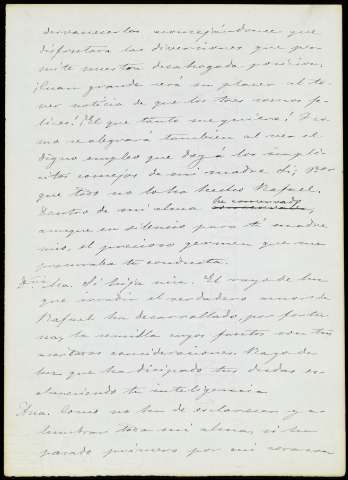 desvanecerlos aconsejándonos que
disfrutara las diversiones que per
mite nuestra desahogada posición.
¡Cuan grande será su placer al te-
ner noticia de que los tres somos fe-
lices! ¡El que tanto me quiere! Y co
mo se alegrará también al ver el
digno empleo que doy á los implí
citos consejos de mi madre. Si; Por
que todo no lo ha hecho Rafael.
Dentro de mi alma he conservado
aunque en silencio para tí madre
mia, el precioso germen que me
procuraba tu conducta.
Si hija mia. El rayo de luz
que irradia el verdadero amor de
Rafael ha desarrollado, por fortu
na, la semilla cuyos frutos son tus
acertadas consideraciones. Rayo de
luz que ha disipado tus dudas es-
clareciendo tu inteligencia
Como no ha de esclarecer y a-
lumbrar toda mi alma, si ha
pasado primero por mi corazon